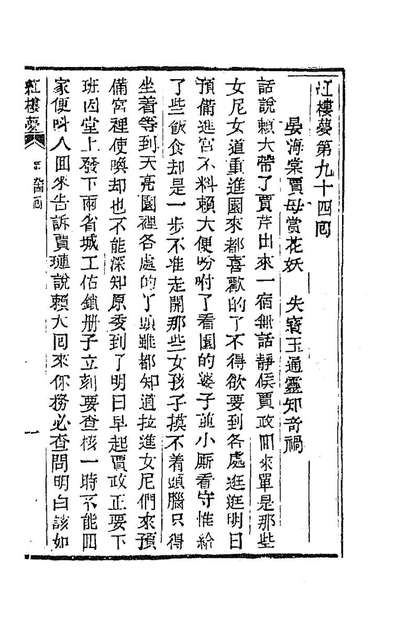 紅樓夢第九十四回
晏海棠賈母賞花妖　失寳玉通靈知奇禍
話說賴大帶了賈芹出來一宿無話靜候賈政回來單是那些
女尼女道重進園來都喜歡的了不得欲要到各處逛逛明日
預備進宮不料賴大便吩咐了看園的婆子並小厮看守惟給
了些飲食却是一步不准走開那些女孩子摸不着頭腦只得
坐着等到天亮園裡各處的丫頭雖都知道拉進女尼們來預
備宮裡使喚却也不能深知原委到了明日早起賈政正要下
班因堂上發下兩省城工估銷册子立刻要查核一時不能回
家便呌人回來告訴賈璉說賴大回來你務必查問明白該如
紅樓夢
第 回
一